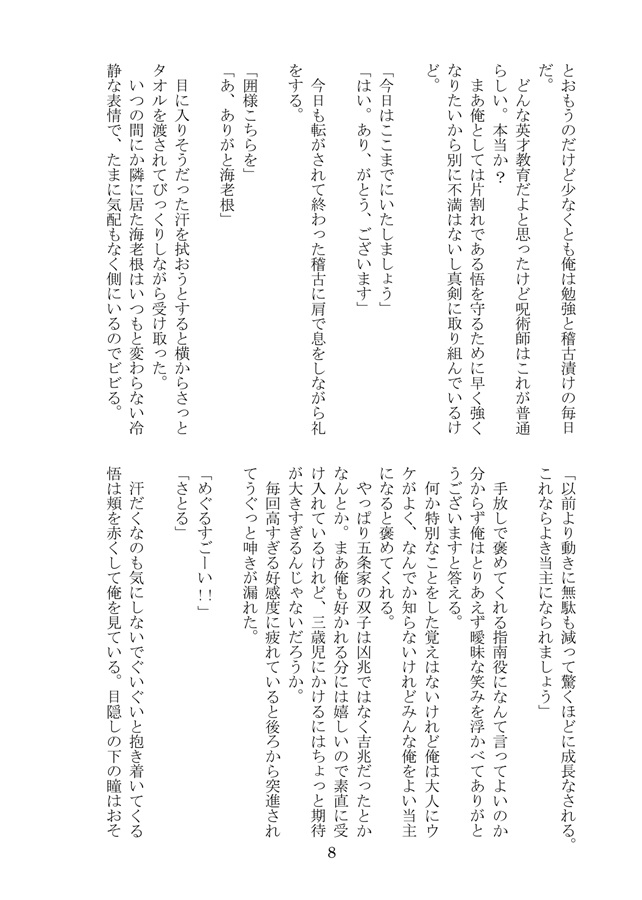 とおもうのだけど少なくとも俺は勉強と稽古漬けの毎日
だ。
どんな英才教育だよと思ったけど呪術師はこれが普通
らしい。本当か？
まあ俺としては片割れである悟を守るために早く強く
なりたいから別に不満はないし真剣に取り組んでいるけ
ど。
「今日はここまでにいたしましょう」
「はい。あり、がとう、ございます」
今日も転がされて終わった稽古に肩で息をしながら礼
をする。
「囲様こちらを」
「あ、ありがと海老根」
目に入りそうだった汗を拭おうとすると横からさっと
タオルを渡されてびっくりしながら受け取った。
いつの間にか隣に居た海老根はいつもと変わらない冷
静な表情で、たまに気配もなく側にいるのでビビる。
「以前より動きに無駄も減って驚くほどに成長なされる。
これならよき当主になられましょう」
手放しで褒めてくれる指南役になんて言ってよいのか
分からず俺はとりあえず曖昧な笑みを浮かべてありがと
うございますと答える。
何か特別なことをした覚えはないけれど俺は大人にウ
ケがよく、なんでか知らないけれどみんな俺をよい当主
になると褒めてくれる。
やっぱり五条家の双子は凶兆ではなく吉兆だったとか
なんとか。まあ俺も好かれる分には嬉しいので素直に受
け入れているけれど、三歳児にかけるにはちょっと期待
が大きすぎるんじゃないだろうか。
毎回高すぎる好感度に疲れていると後ろから突進され
てうぐっと呻きが漏れた。
「めぐるすごーい!!」
「さとる」
汗だくなのも気にしないでぐいぐいと抱き着いてくる
悟は頬を赤くして俺を見ている。目隠しの下の瞳はおそ
8